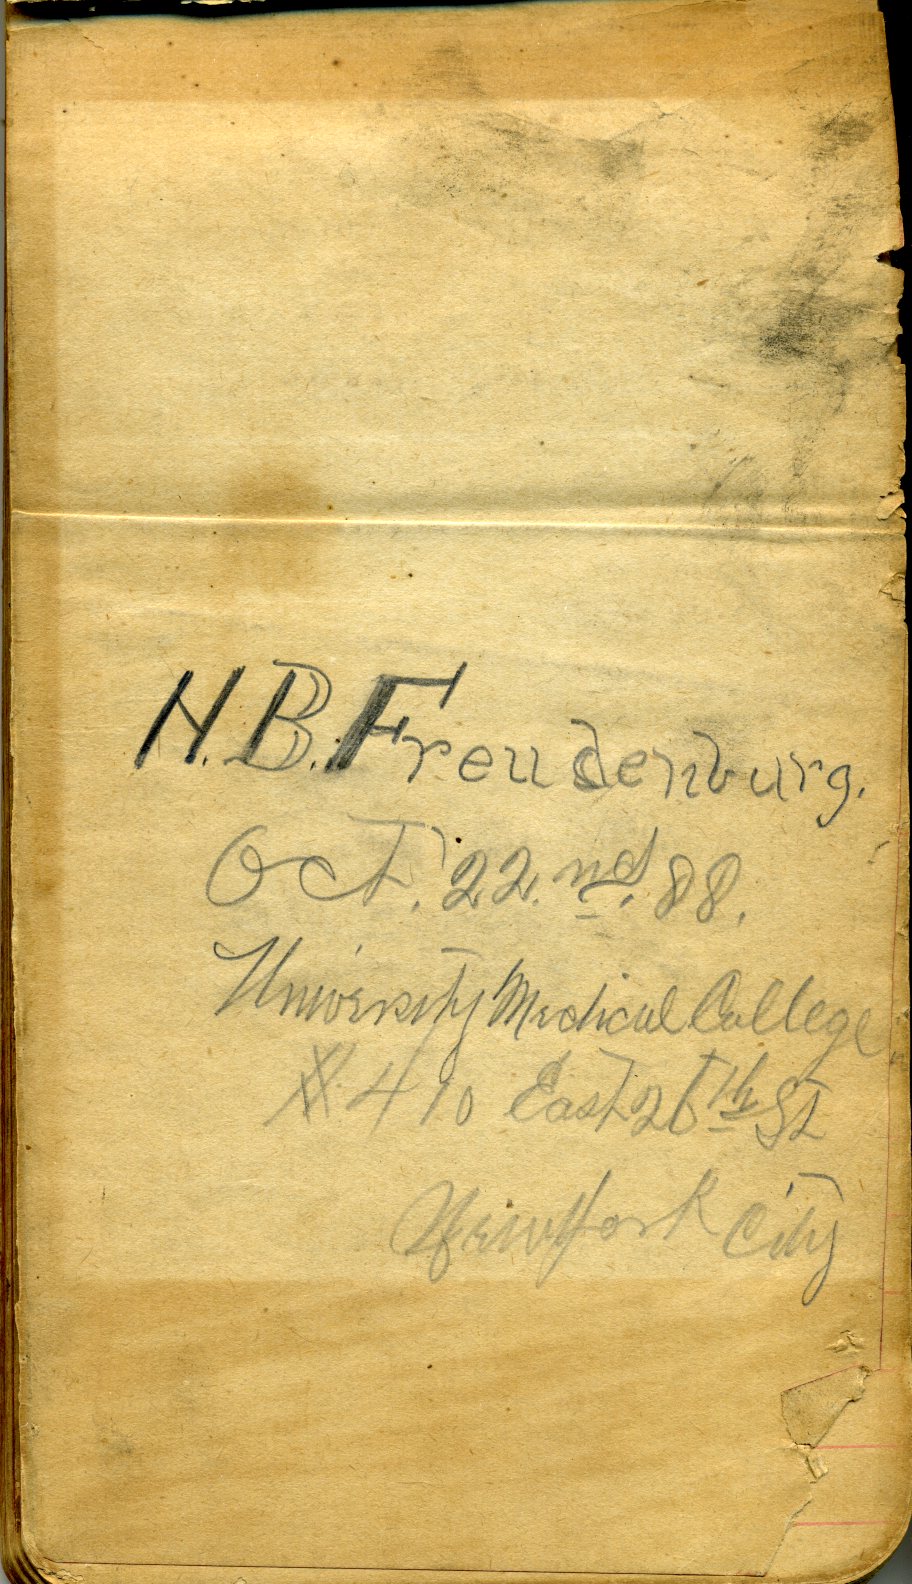 H. B. Freudenburg.
Oct. 22.nd. 88.
University Medical College
#. 410 East 26th St
New York City